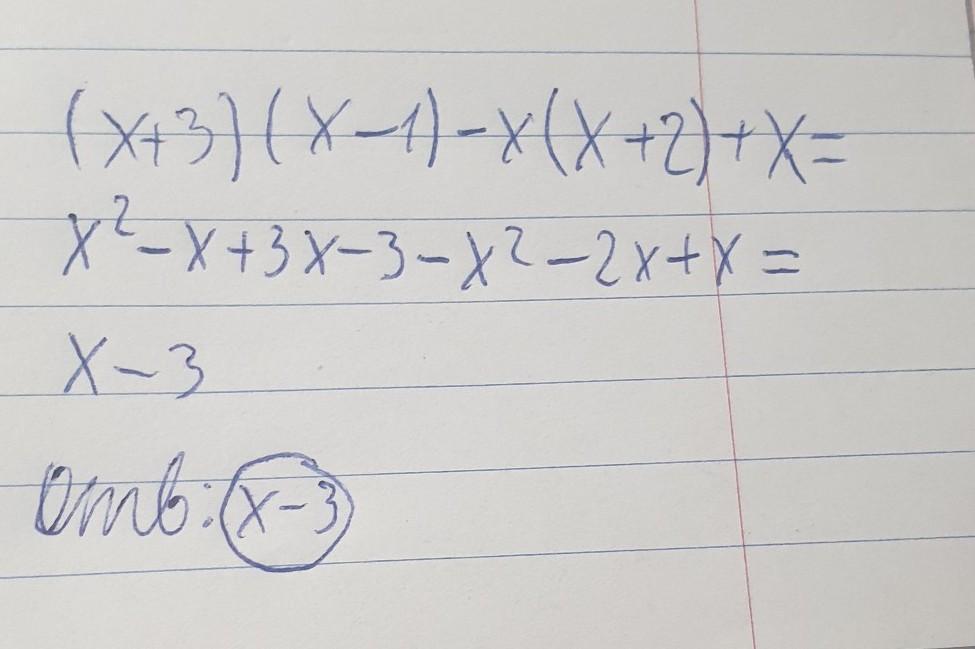 (x+3)(x-1)-x(x+2)+x=
x²-x+3x-3-x²-2x+x=
x-3
Отв: x-3